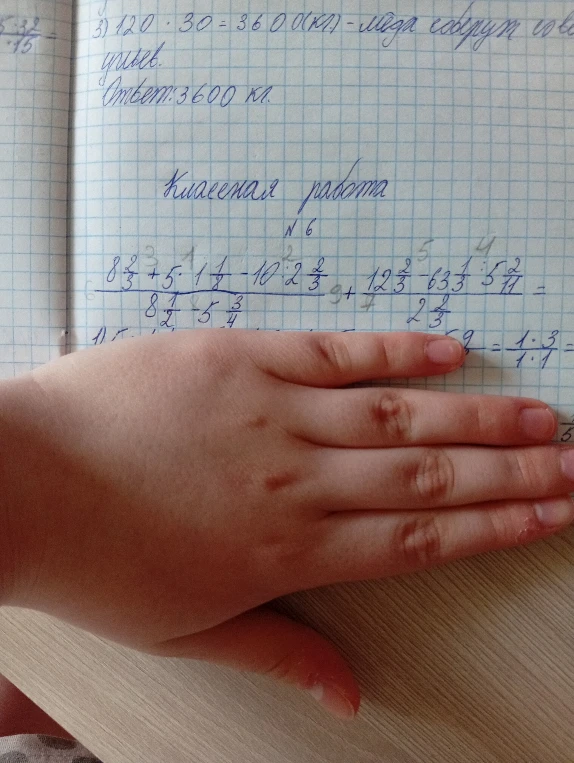 5·32/·15 =
3) 120 · 30 = 3600 (кг) - мёда соберут
ульев.
Ответ: 3600 кг.
Классная работа
№ 6
(8 2/3 + 5 · 1 1/8 - 10 : 2 2/3)/(8 1/2 - 5 3/4) + (12 2/3 - 63 1/3 : 5 2/11)/(2 2/3) =
1) 5 9 = 1·3/1·1 =